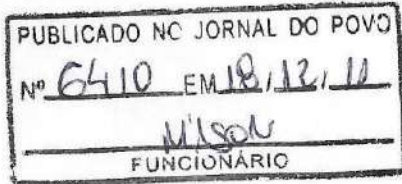 PUBLICADO NO JORNAL DO POVO
Nº 6410 EM 18,12,11
Nilson
FUNCIONÁRIO